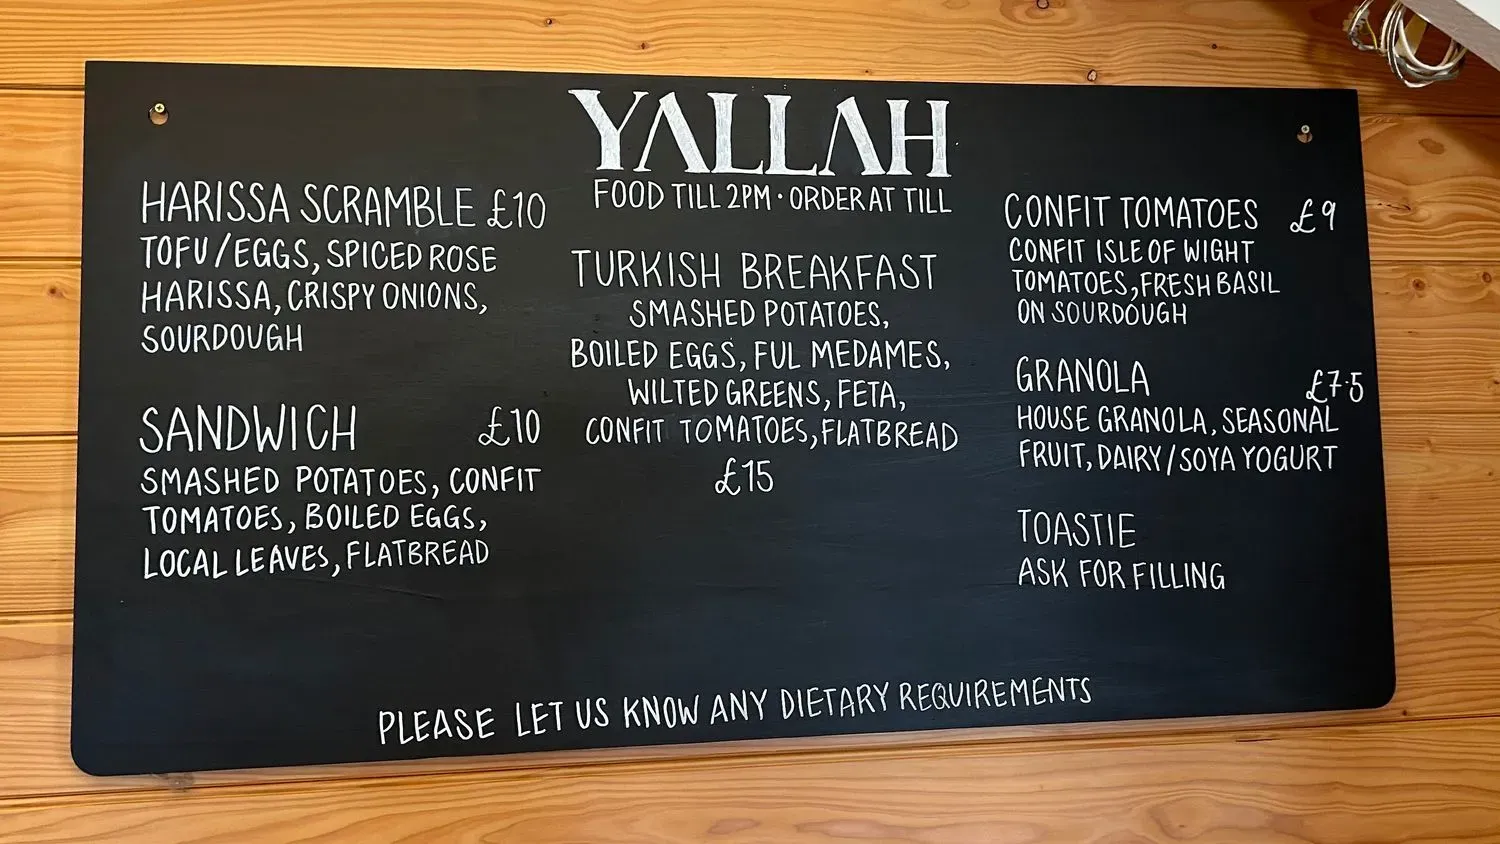 YALLAH
FOOD TILL 2PM · ORDER AT TILL
HARISSA SCRAMBLE £10
TOFU/EGGS, SPICED ROSE
HARISSA, CRISPY ONIONS,
SOURDOUGH
SANDWICH £10
SMASHED POTATOES, CONFIT
TOMATOES, BOILED EGGS,
LOCAL LEAVES, FLATBREAD
TURKISH BREAKFAST
SMASHED POTATOES,
BOILED EGGS, FUL MEDAMES,
WILTED GREENS, FETA,
CONFIT TOMATOES, FLATBREAD
£15
CONFIT TOMATOES £9
CONFIT ISLE OF WIGHT
TOMATOES, FRESH BASIL
ON SOURDOUGH
GRANOLA £7.5
HOUSE GRANOLA, SEASONAL
FRUIT, DAIRY/SOYA YOGURT
TOASTIE
ASK FOR FILLING
PLEASE LET US KNOW ANY DIETARY REQUIREMENTS